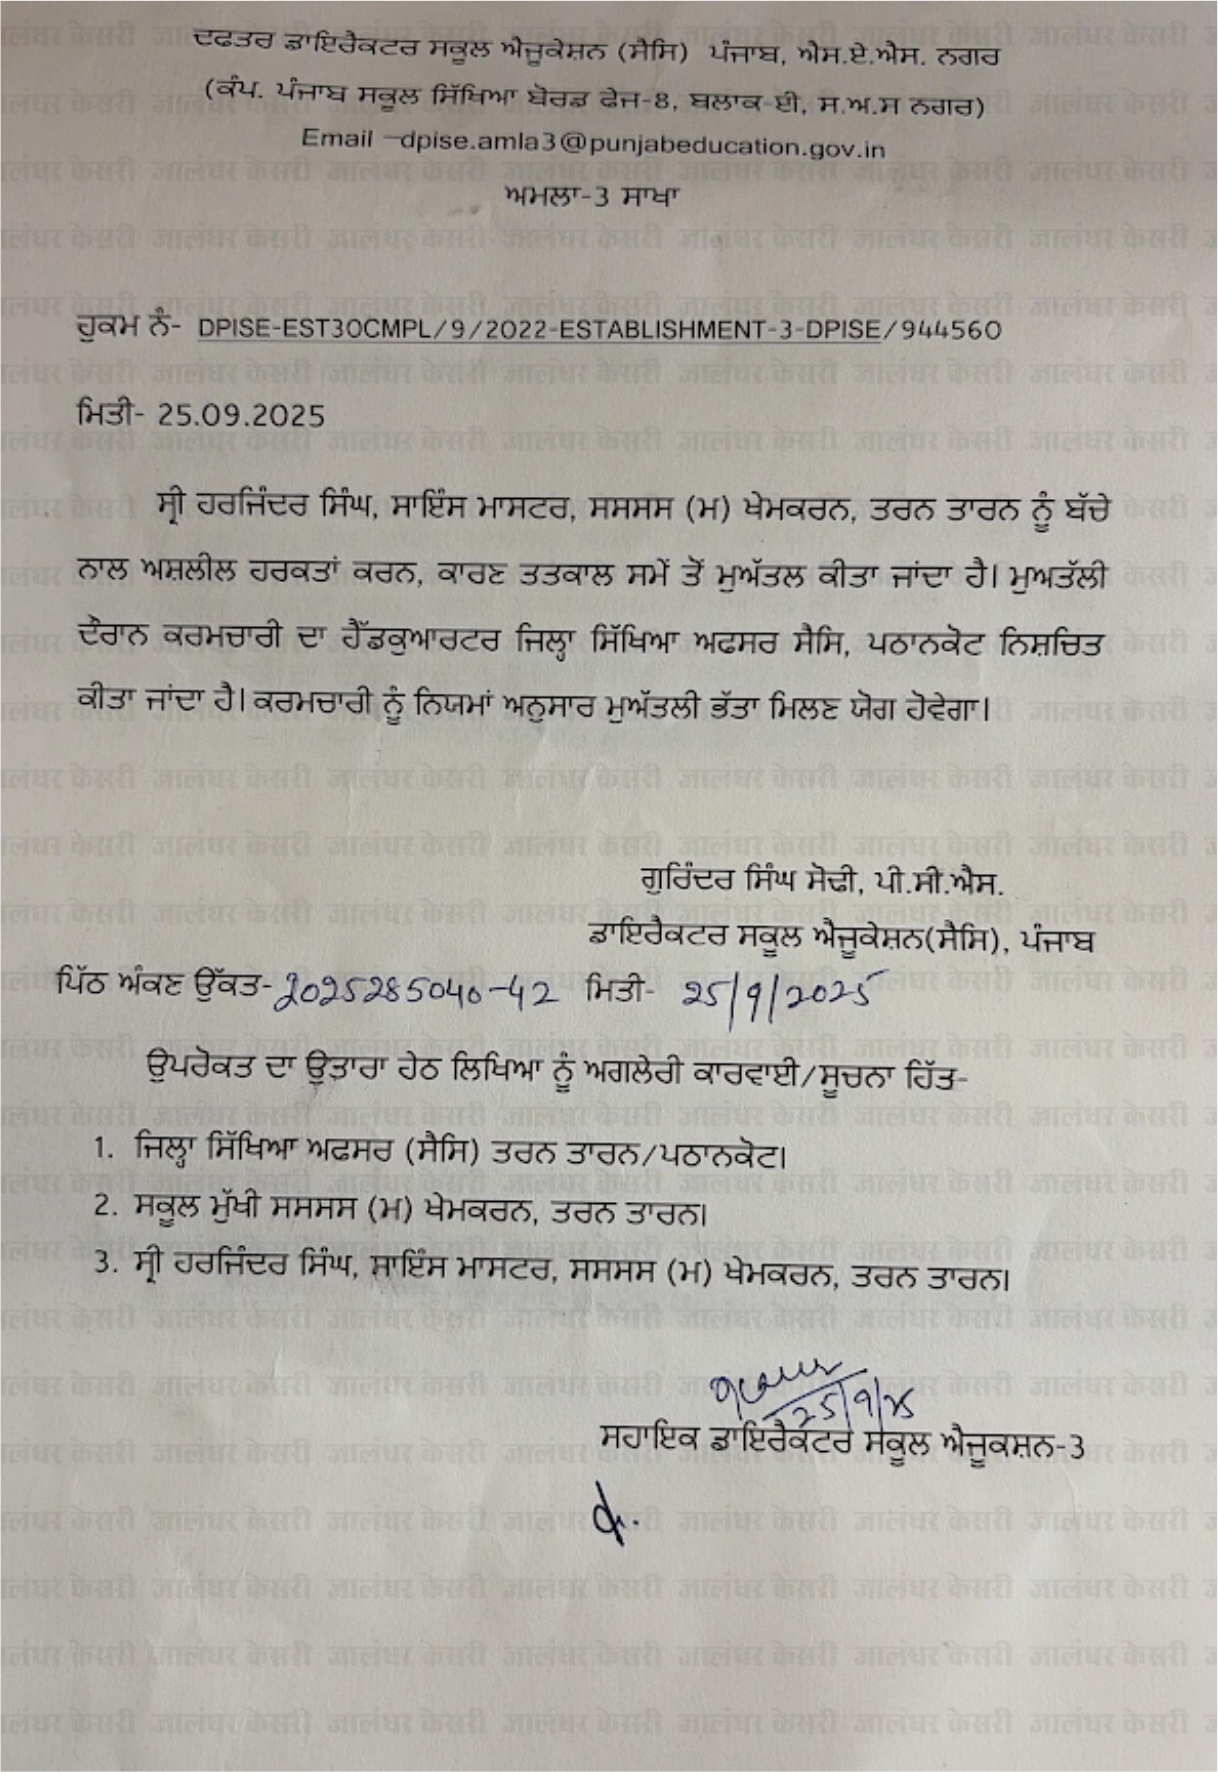 ਦਫਤਰ ਡਾਇਰੈਕਟਰ ਸਕੂਲ ਐਜੂਕੇਸ਼ਨ (ਸੈਸਿ) ਪੰਜਾਬ, ਐਸ.ਏ.ਐਸ. ਨਗਰ
(ਕੰਪ. ਪੰਜਾਬ ਸਕੂਲ ਸਿੱਖਿਆ ਬੋਰਡ ਫੇਜ-8, ਬਲਾਕ-ਈ, ਸ.ਅ.ਸ ਨਗਰ)
Email –dpise.amla3@punjabeducation.gov.in
ਅਮਲਾ-3 ਸਾਖਾ
ਹੁਕਮ ਨੰ- DPISE-EST3OCMPL/9/2022-ESTABLISHMENT-3-DPISE/944560
ਮਿਤੀ- 25.09.2025
ਸ੍ਰੀ ਹਰਜਿੰਦਰ ਸਿੰਘ, ਸਾਇੰਸ ਮਾਸਟਰ, ਸਸਸਸ (ਮ) ਖੇਮਕਰਨ, ਤਰਨ ਤਾਰਨ ਨੂੰ ਬੱਚੇ
ਨਾਲ ਅਸ਼ਲੀਲ ਹਰਕਤਾਂ ਕਰਨ, ਕਾਰਣ ਤਤਕਾਲ ਸਮੇਂ ਤੋਂ ਮੁਅੱਤਲ ਕੀਤਾ ਜਾਂਦਾ ਹੈ। ਮੁਅਤੱਲੀ
ਦੌਰਾਨ ਕਰਮਚਾਰੀ ਦਾ ਹੈੱਡਕੁਆਰਟਰ ਜਿਲ੍ਹਾ ਸਿੱਖਿਆ ਅਫਸਰ ਸੈਸਿ, ਪਠਾਨਕੋਟ ਨਿਸ਼ਚਿਤ
ਕੀਤਾ ਜਾਂਦਾ ਹੈ। ਕਰਮਚਾਰੀ ਨੂੰ ਨਿਯਮਾਂ ਅਨੁਸਾਰ ਮੁਅੱਤਲੀ ਭੱਤਾ ਮਿਲਣ ਯੋਗ ਹੋਵੇਗਾ।
ਗੁਰਿੰਦਰ ਸਿੰਘ ਸੋਢੀ, ਪੀ.ਸੀ.ਐਸ.
ਡਾਇਰੈਕਟਰ ਸਕੂਲ ਐਜੂਕੇਸ਼ਨ(ਸੈਸਿ), ਪੰਜਾਬ
ਪਿੱਠ ਅੰਕਣ ਉੱਕਤ- 2025285040-42 ਮਿਤੀ- 25/9/2025
ਉਪਰੋਕਤ ਦਾ ਉਤਾਰਾ ਹੇਠ ਲਿਖਿਆ ਨੂੰ ਅਗਲੇਰੀ ਕਾਰਵਾਈ/ਸੂਚਨਾ ਹਿੱਤ-
1. ਜਿਲ੍ਹਾ ਸਿੱਖਿਆ ਅਫਸਰ (ਸੈਸਿ) ਤਰਨ ਤਾਰਨ/ਪਠਾਨਕੋਟ।
2. ਸਕੂਲ ਮੁੱਖੀ ਸਸਸਸ (ਮ) ਖੇਮਕਰਨ, ਤਰਨ ਤਾਰਨ।
3. ਸ੍ਰੀ ਹਰਜਿੰਦਰ ਸਿੰਘ, ਸਾਇੰਸ ਮਾਸਟਰ, ਸਸਸਸ (ਮ) ਖੇਮਕਰਨ, ਤਰਨ ਤਾਰਨ।
25/9/25
ਸਹਾਇਕ ਡਾਇਰੈਕਟਰ ਸਕੂਲ ਐਜੂਕਸ਼ਨ-3
जालंधर केसरी